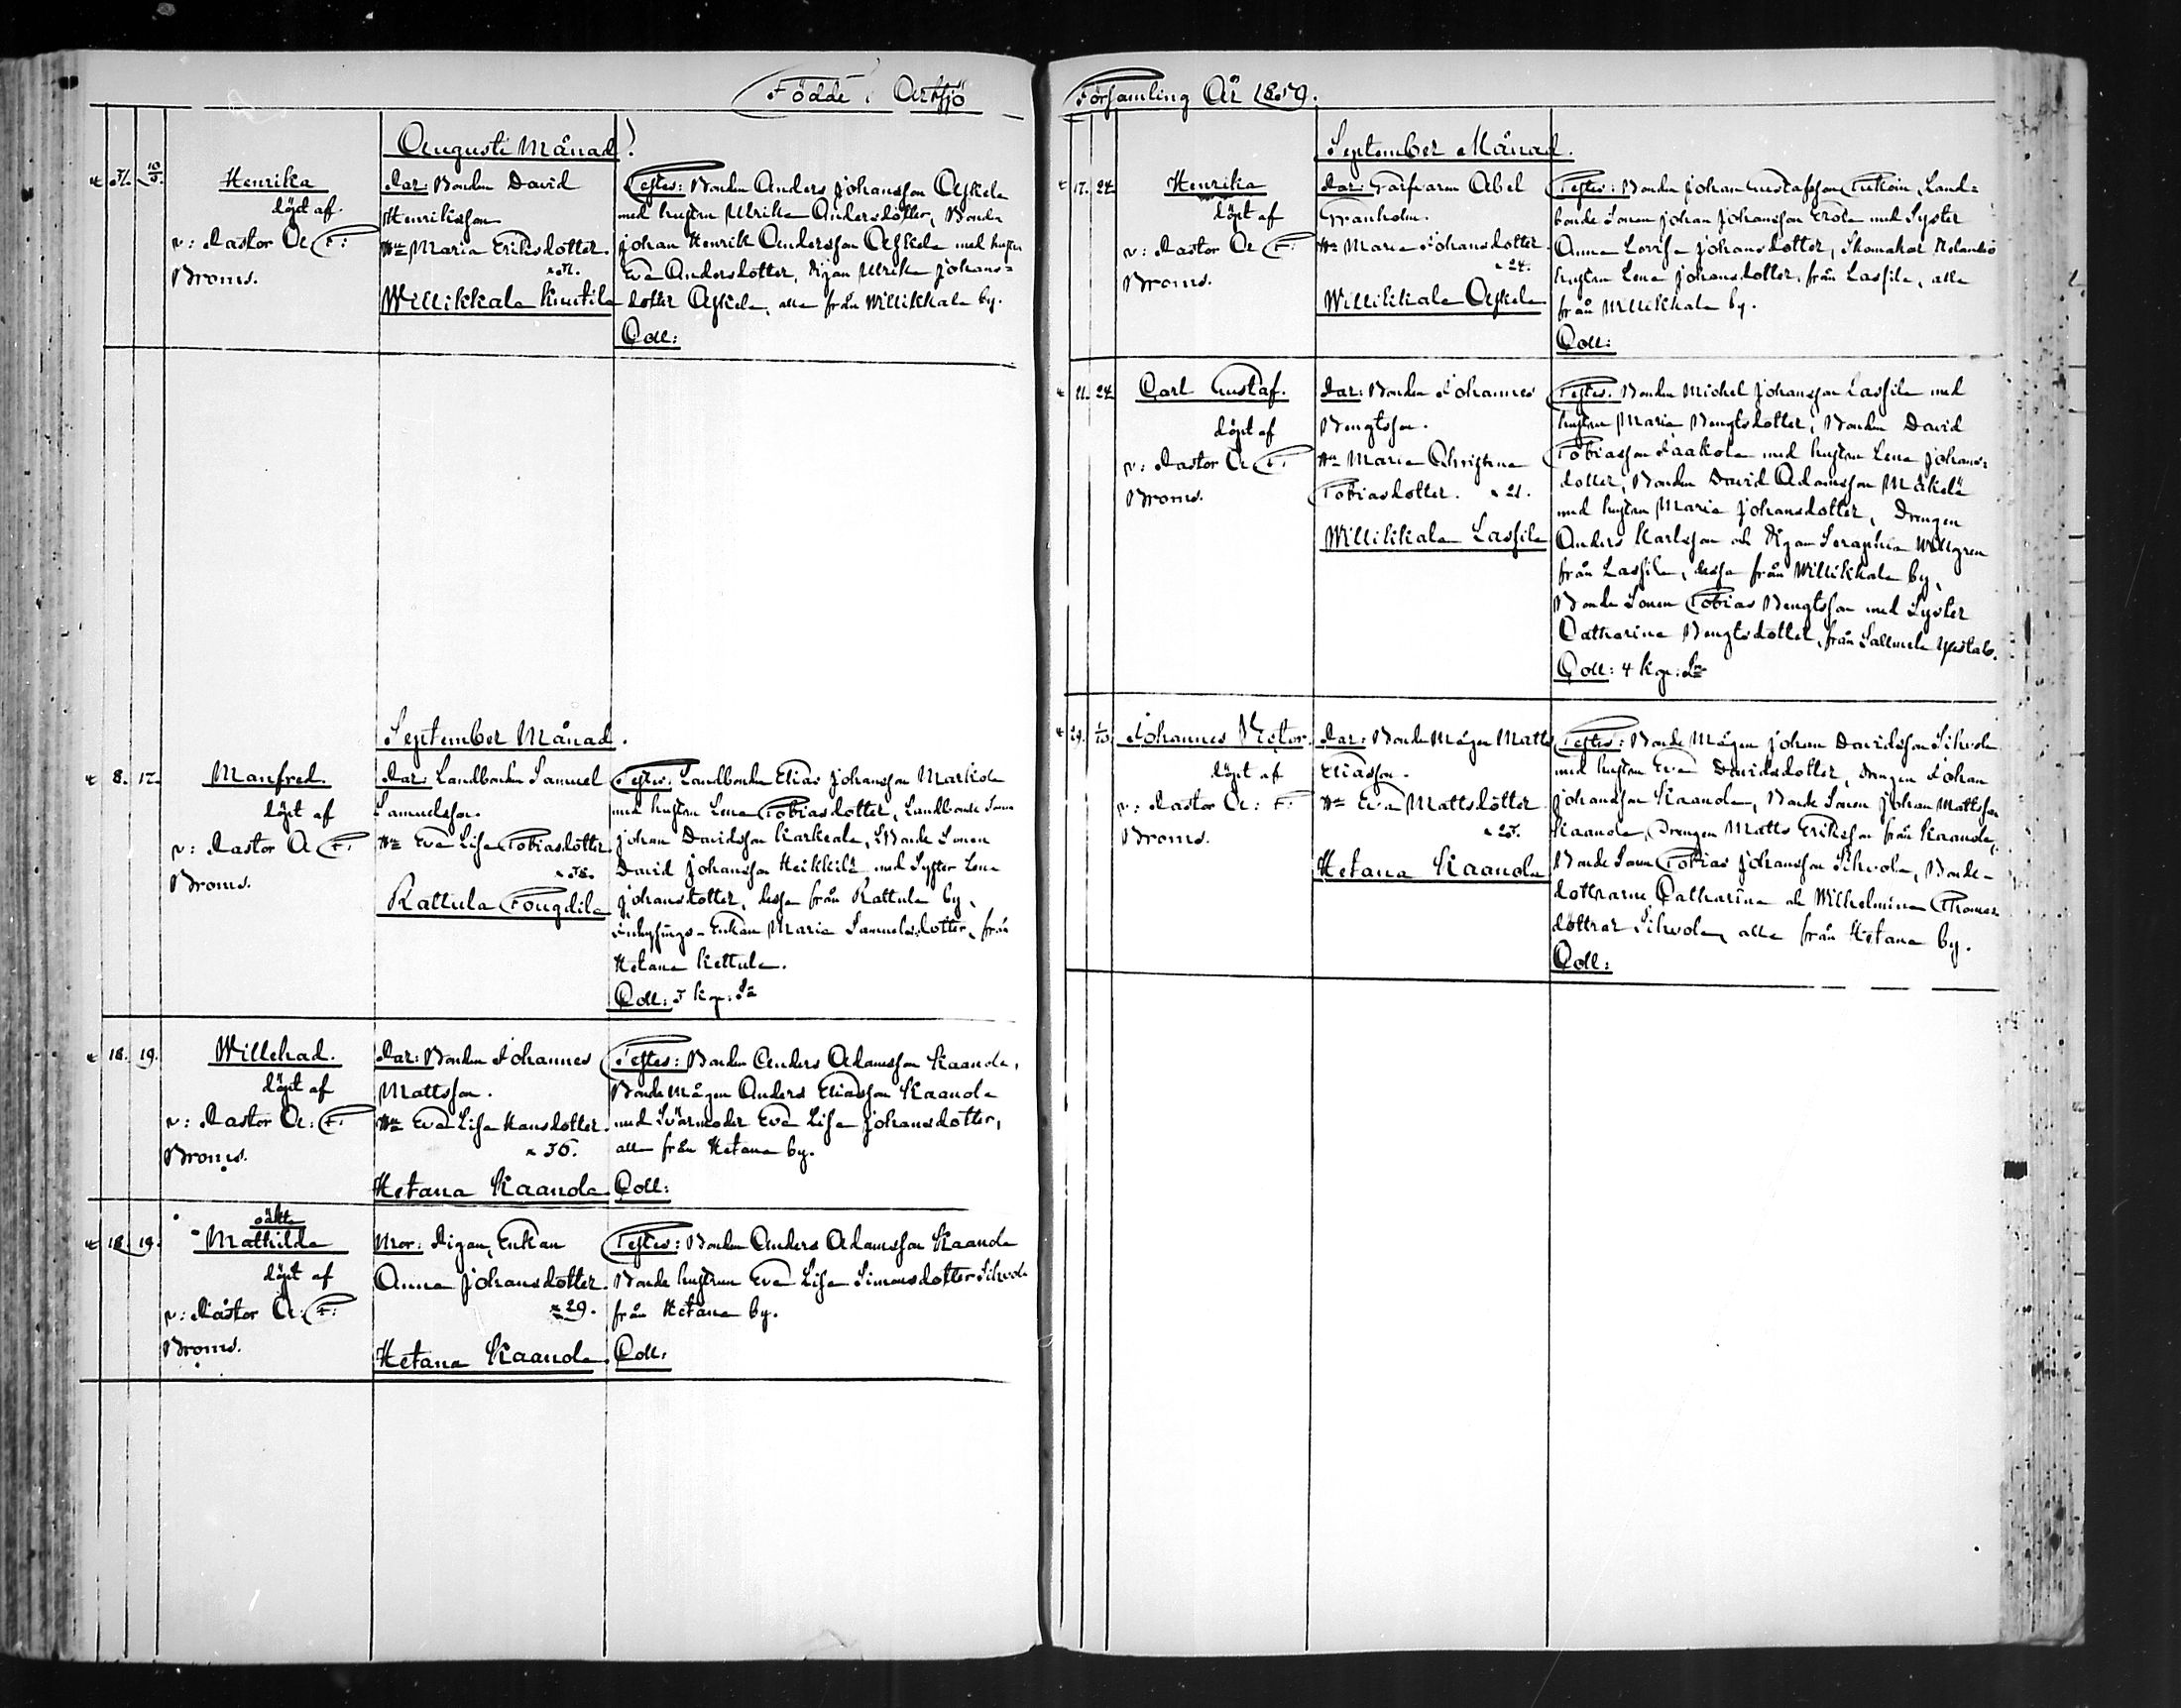 Födde i Artsjö
Augusti Månad.
31. 10/9.
Henrika
döpt af
v: Pastor A: F:
Broms.
Par: Bonden David
Henriksson
Hu Maria Eriksdotter.
Willikkala Knutila
Testes: Bonden Anders Johansson Asskela
med hustru Ulrika Andersdotter, Bonden
Johan Henrik Andersson Asskela med hustru
Eva Andersdotter, Pigan Ulrika Johans-
dotter Asskela, alla från Willikkala by.
Coll:
September Månad.
8. 17.
Manfred.
döpt af
v: Pastor A F:
Broms.
Par: Landbonden Samuel
Samuelsson.
Hu Eva Lisa Tobiasdotter.
Rattula Fougdila
Testes: Landbonden Elias Johansson Markola
med hustru Lena Tobiasdotter, Landbonde Sonen
Johan Davidsson Karkeala, Bonde Sonen
David Johansson Heikkilä med Syster Lena
Johansdotter, dessa från Rattula by,
inhysings-Enkan Maria Samuelsdotter, från
Hetana Kettula.
Coll: 5 kop: Sr
18. 19.
Willehad.
döpt af
v: Pastor A: F:
Broms.
Par: Bonden Johannes
Mattsson.
Hu Eva Lisa Hansdotter.
36.
Hetana Kaanola.
Testes: Bonden Anders Adamsson Kaanola,
Bonde Mågen Anders Eliasson Kaanola
med Svärmoder Eva Lisa Johansdotter,
alla från Hetana by.
Coll:
18. 19.
oäkta
Mathilda
döpt af
v: Pastor A: F:
Broms.
Mor: Pigan, Enkan
Anna Johansdotter.
29.
Hetana Kaanola.
Testes: Bonden Anders Adamsson Kaanola
Bonde hustrun Eva Lisa Simonsdotter Sihvola
från Hetana by.
Coll:
Församling År 1859.
September Månad.
17. 24.
Henrika
döpt af
v: Pastor A F:
Broms.
Par: Garfvaren Abel
Granholm.
Hu Maria Johansdotter
24.
Willikkala Asskela
Testes: Bonden Johan Gustafsson Tukoin, Land-
bonde Sonen Johan Johansson Erola med Syster
Anna Lovisa Johansdotter, Skomakar Melanders
hustru Lena Johansdotter, från Lassila, alla
från Willikkala by.
Coll:
21. 24.
Carl Gustaf.
döpt af
v: Pastor A F:
Broms.
Par: Bonden Johannes
Bengtsson.
Hu Maria Christina
Tobiasdotter. 21.
Willikkala Lassila
Testes: Bonden Michel Johansson Lassila med
hustru Maria Bengtsdotter, Bonden David
Tobiasson Jaakola med hustru Lena Johans-
dotter, Bonden David Adamsson Mäkelä
med hustru Maria Johansdotter, Drengen
Anders Karlsson och Pigan Seraphia Willgren
från Lassila, dessa från Willikkala by,
Bonde Sonen Tobias Bengtsson med Syster
Catharina Bengtsdotter, från Sallmela
Coll: 4 kop: Sr
29. 1/10.
Johannes Victor.
döpt af
v: Pastor A: F:
Broms.
Par: Bonde Mågen Matts
Eliasson.
Hu Eva Mattsdotter
25.
Hetana Kaanola
Testes: Bonde Mågen Johan Davidsson Sihvola
med hustru Eva Davidsdotter, drengen Johan
Johansson Kaanola, Bonde Sonen Johan Mattsson
Kaanola, Drengen Matts Eriksson från Kaanola,
Bonde Sonen Tobias Johansson Sihvola, Bonde-
döttrarne Catharina och Wilhelmina Thomas
döttrar Sihvola, alla från Hetana by.
Coll: